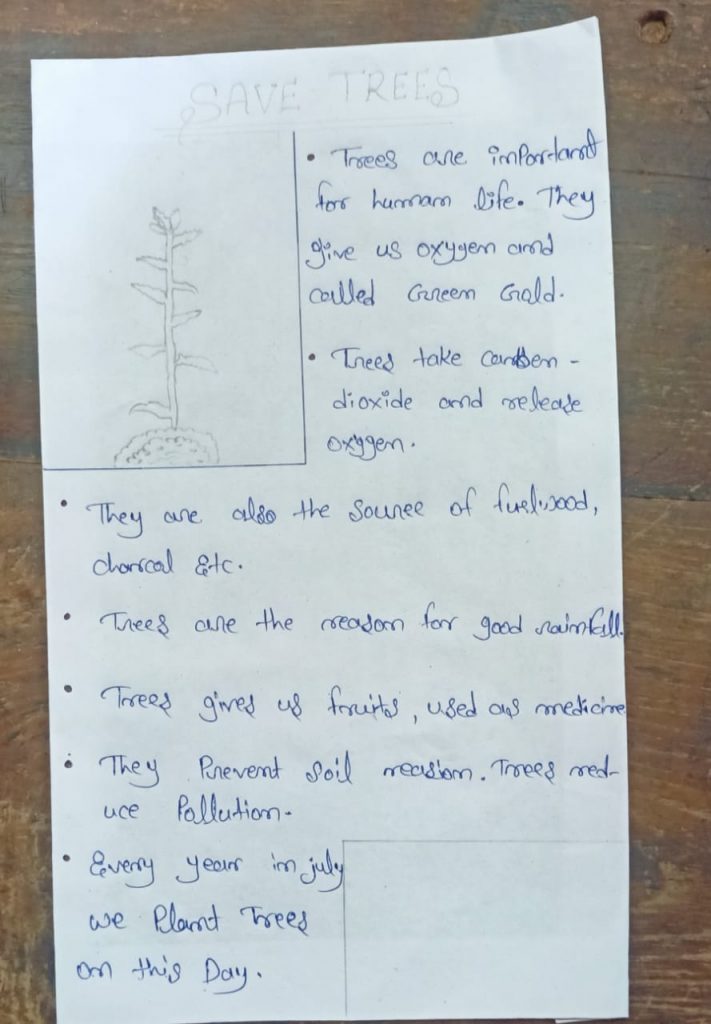 SAVE TREES
• Trees are important
for human life. They
give us oxygen and
called Green Gold.
• Trees take carben -
dioxide and release
oxygen.
• They are also the source of fuelwood,
charcol Etc.
• Trees are the reason for good rainfall.
• Trees gives us fruits, used as medicine
• They Prevent soil reasion. Trees red-
uce Pollution.
• Every year in july
we Plant Trees
on this Day.